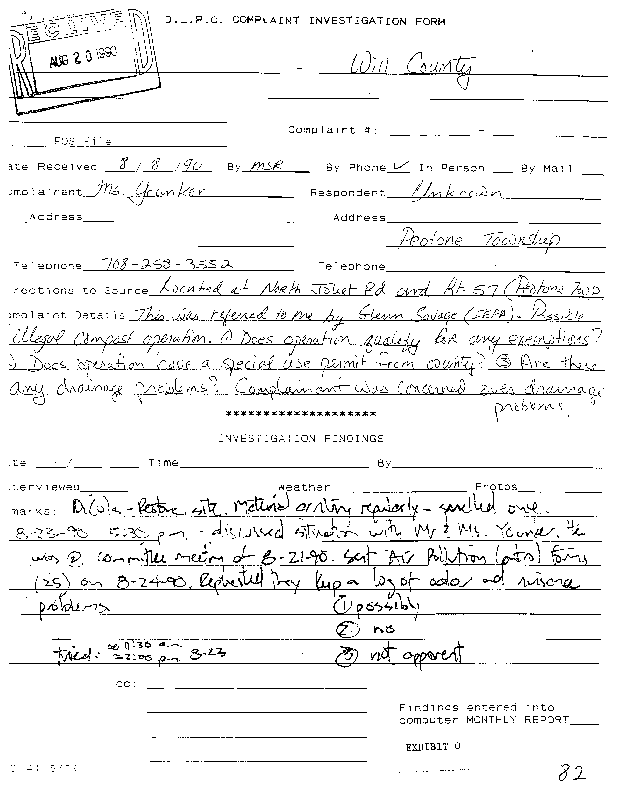 RECEIVED
AUG 20 1990
D.L.P.C. COMPLAINT INVESTIGATION FORM
Will County
Complaint #:
FOS File
ate Received 8/8/90 By MSR By Phone ✓ In Person By Mail
omplainant Ms. Younker Respondent Unknown
Address Address
Peotone Township
Telephone 708-258-3552 Telephone
rections to Source Located at North Joliet Rd and Rt 57 (Peotone
omplaint Details This was referred to me by Glenn Savage (IEPA). Possible
illegal compost operation. ① Does operation qualify for any exemptions?
② Does operation have a special use permit from county? ③ Are there
any drainage problems? Complainant was concerned over drainage
problems.
*******************
INVESTIGATION FINDINGS
te / Time By
terviewed Weather Photos
marks: site. Material arriving regularly -
8-23-90 p.m. - discussed situation with Mr & Ms. Younker. He
was @ committee meeting of 8-21-90. Sent Air Pollution forms
(25) on 8-24-90. Requested they keep a log of odor and
problems ① possibly
② no
tried: 8-23 ③ not apparent
cc:
Findings entered into
computer MONTHLY REPORT
EXHIBIT O
82